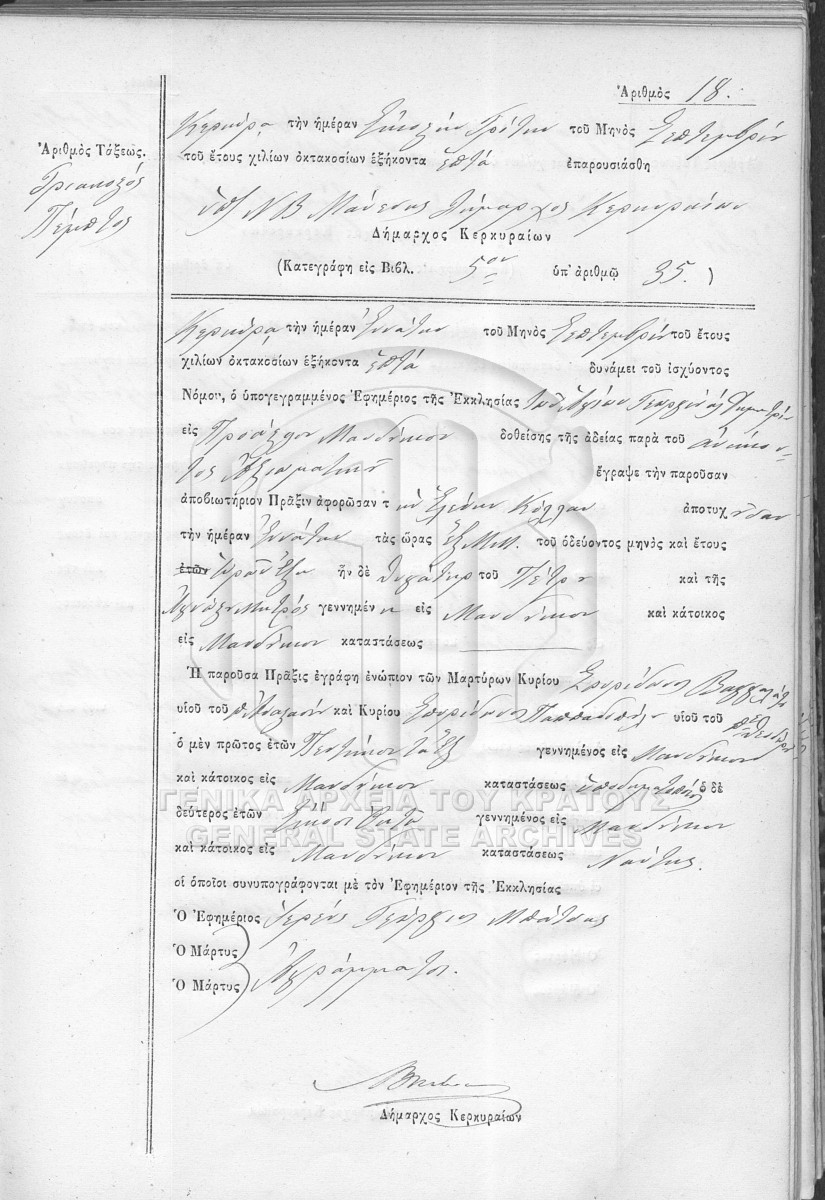 Ἀριθμὸς 18.
Ἀριθμὸς Τάξεως.
Τριακοστός
Πέμπτος
Κερκύρα, τὴν ἡμέραν Εἰκοστὴν Τρίτην τοῦ Μηνὸς Σεπτεμβρίου
τοῦ ἔτους χιλίων ὀκτακοσίων ἑξήκοντα ἑπτά ἐπαρουσιάσθη
Ν Β Δήμαρχος Κερκυραίων
Δήμαρχος Κερκυραίων
(Κατεγράφη εἰς Βιβλ. 5ον ὑπ' ἀριθμῷ 35.)
Κερκύρα, τὴν ἡμέραν Ἐννάτην τοῦ Μηνὸς Σεπτεμβρίου τοῦ ἔτους
χιλίων ὀκτακοσίων ἑξήκοντα ἑπτά δυνάμει τοῦ ἰσχύοντος
Νόμου, ὁ ὑπογεγραμμένος Ἐφημέριος τῆς Ἐκκλησίας τῶν Ἁγίων Γεωργίου Δημητρίου
εἰς Προάστειον Μανδούκιον δοθείσης τῆς ἀδείας παρὰ τοῦ ἀνήκον-
τος Ἀξιωματικοῦ ἔγραψε τὴν παροῦσαν
ἀποβιωτήριον Πρᾶξιν ἀφορῶσαν τ ὴν Ἑλένην Κόλλα ἀποτυχ οῦσαν
τὴν ἡμέραν Ἐννάτην τὰς ὥρας ἓξ Μ.Μ. τοῦ ὁδεύοντος μηνὸς καὶ ἔτους
ἐτῶν ὡρῶν ἓξ ἦν δὲ θυγάτηρ τοῦ Πέτρου καὶ τῆς
Ἀγνώστου Μητρός γεννημέν η εἰς Μανδούκιον καὶ κάτοικος
εἰς Μανδούκιον καταστάσεως
Ἡ παροῦσα Πρᾶξις ἐγράφη ἐνώπιον τῶν Μαρτύρων Κυρίου Σπυρίδωνος
υἱοῦ τοῦ καὶ Κυρίου Σπυρίδωνος Παπαδοπούλου υἱοῦ τοῦ
ὁ μὲν πρῶτος ἐτῶν Πεντήκοντα ἓξ γεννημένος εἰς Μανδούκιον
καὶ κάτοικος εἰς Μανδούκιον καταστάσεως Ὑποδηματοποιός ὁ δὲ
δεύτερος ἐτῶν Εἴκοσι Ὀκτώ γεννημένος εἰς Μανδούκιον
καὶ κάτοικος εἰς Μανδούκιον καταστάσεως Ναύτης.
οἱ ὁποῖοι συνυπογράφονται μὲ τὸν Ἐφημέριον τῆς Ἐκκλησίας
Ὁ Ἐφημέριος Ἱερεύς Γεώργιος Μπάτσας
Ὁ Μάρτυς
Ὁ Μάρτυς Ἀγράμματοι.
Δήμαρχος Κερκυραίων
ΓΕΝΙΚΑ ΑΡΧΕΙΑ ΤΟΥ ΚΡΑΤΟΥΣ
GENERAL STATE ARCHIVES